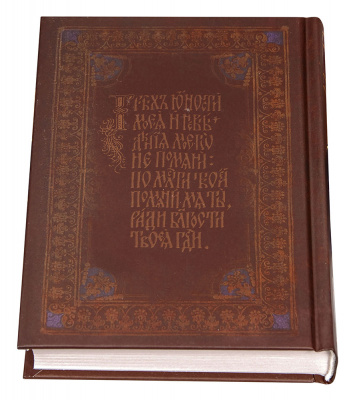 Грѣхъ юности
моеѧ и невѣ
дѣнїѧ моегѡ
не помѧни:
по млти твоей
помѧни мѧ ты,
ради блгости
твоеѧ гди.